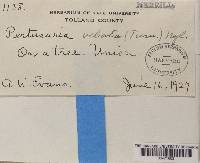 1138.
MERRILL
HERBARIUM OF YALE UNIVERSITY
TOLLAND COUNTY
Pertusaria velata (Turn.) Nyl.
On a tree. Union
A. W. Evans. June 16, 1927